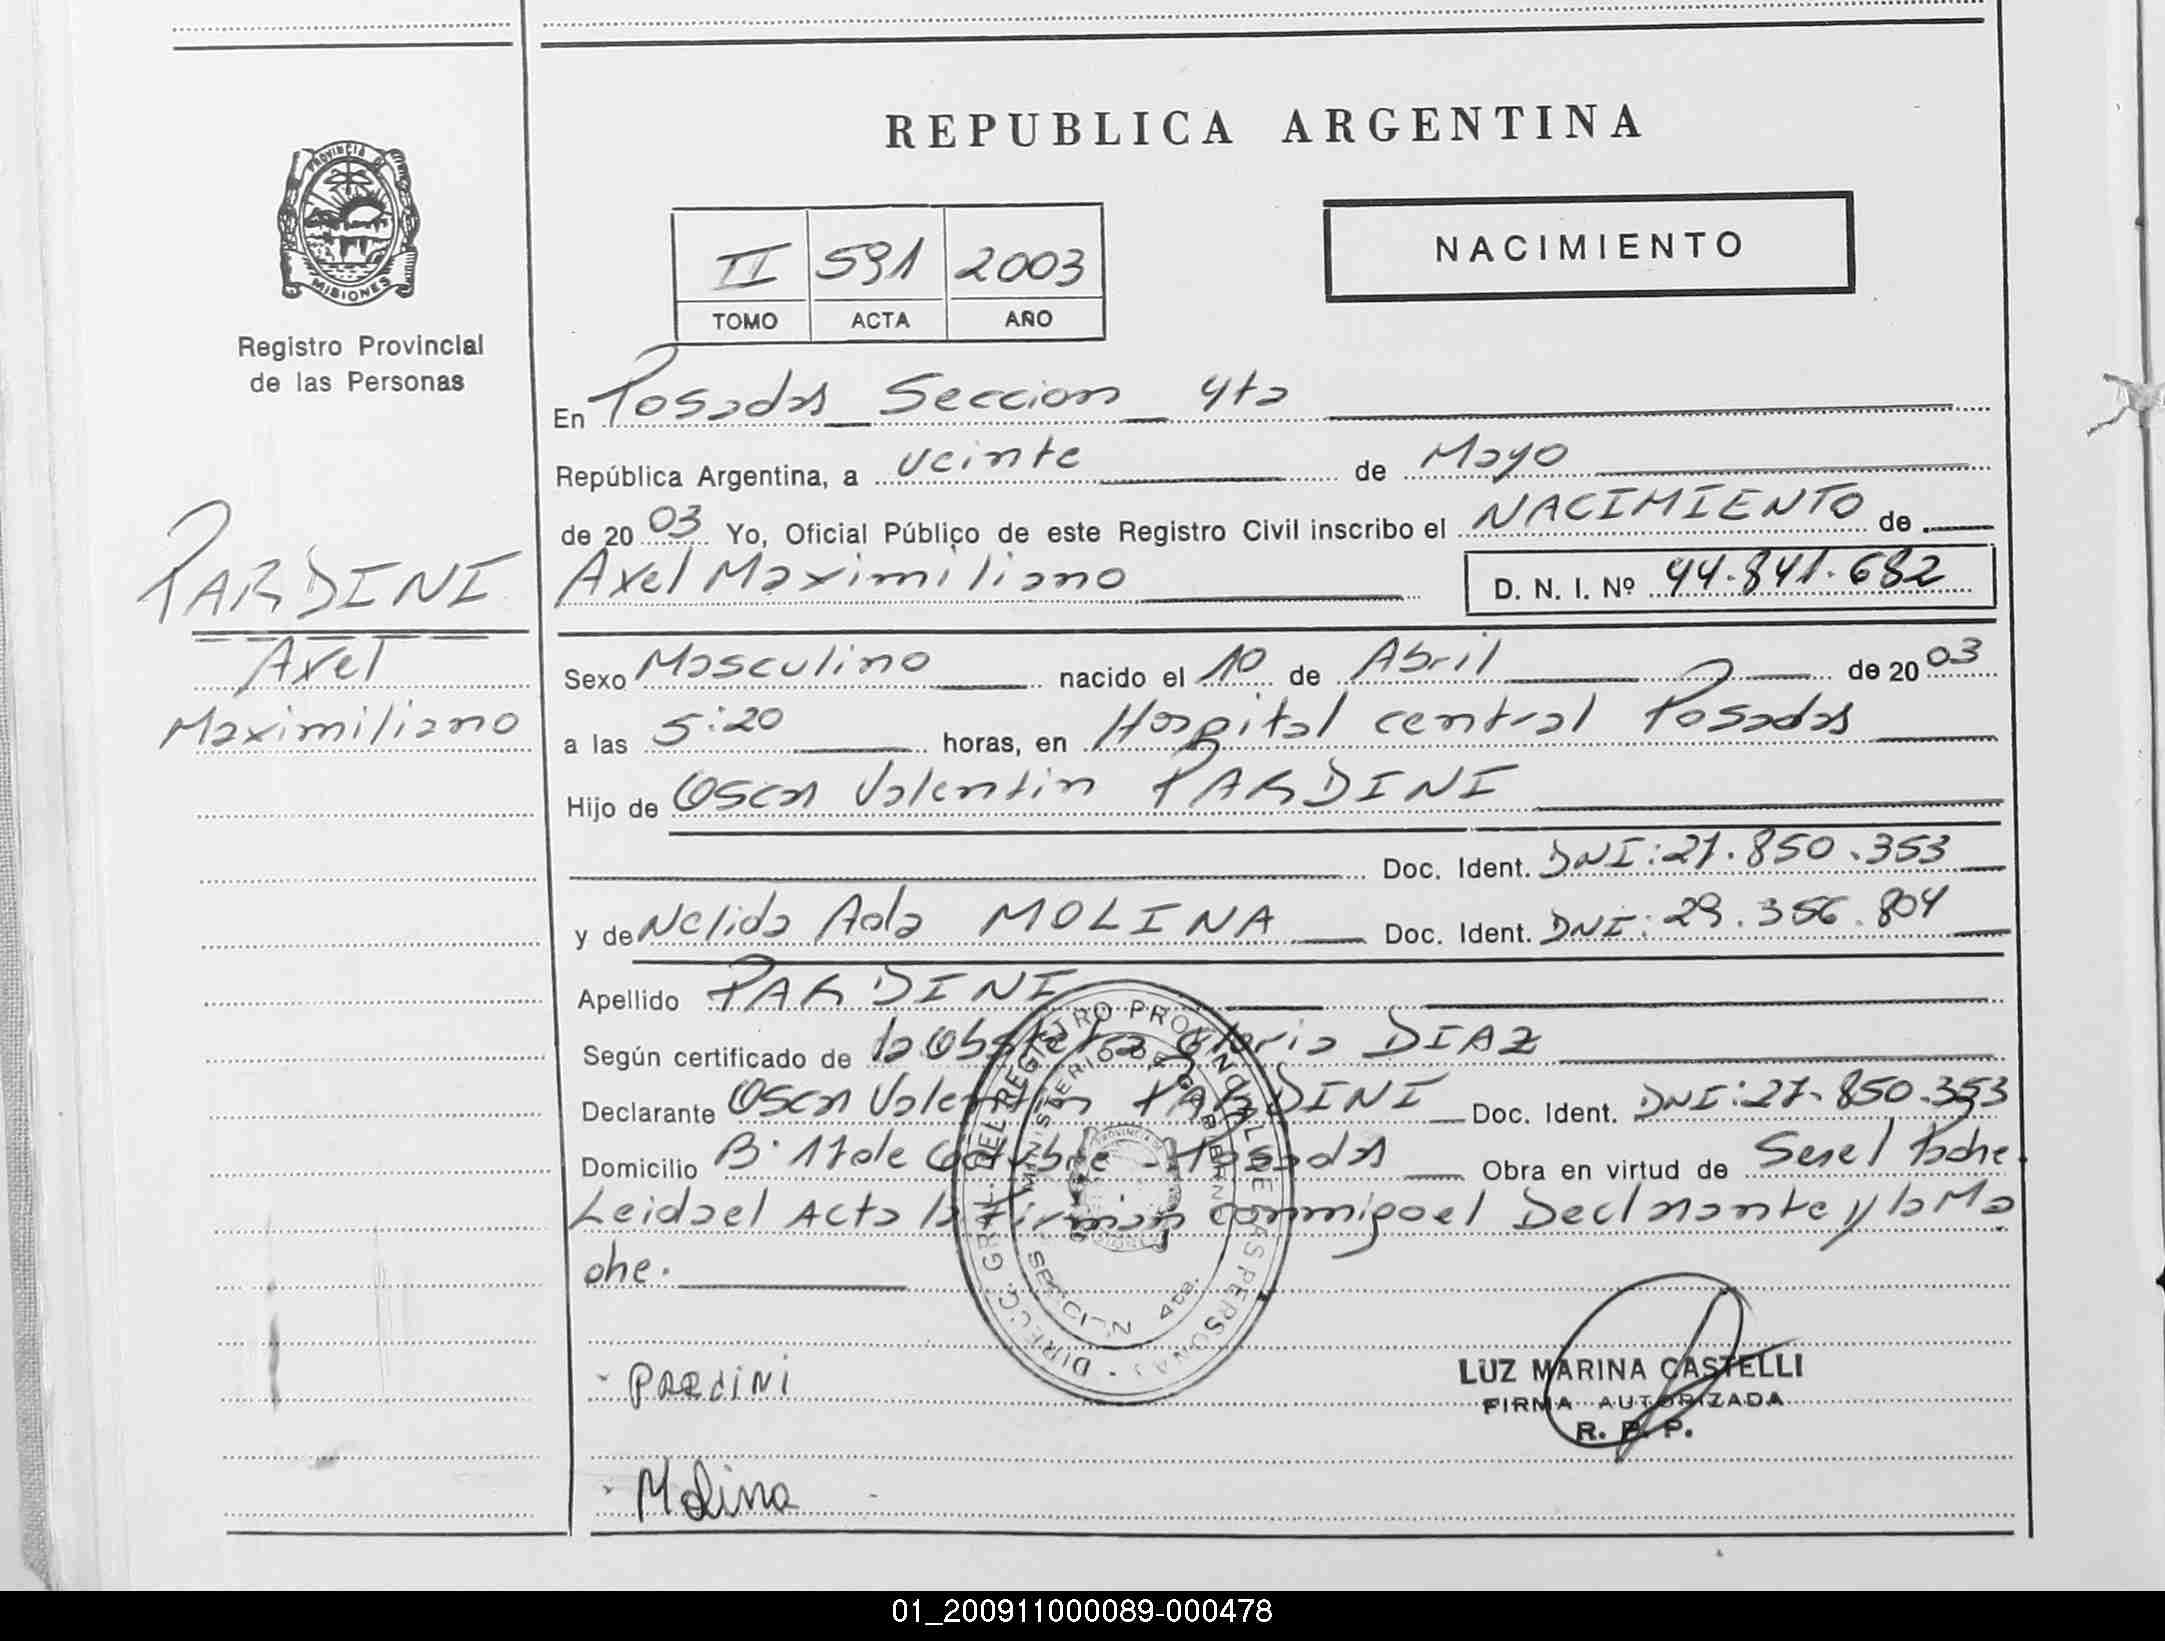 REPUBLICA ARGENTINA
PROVINCIA DE
MISIONES
Registro Provincial
de las Personas
II 591 2003
TOMO ACTA AÑO
NACIMIENTO
En Posadas Seccion 4ta
República Argentina, a veinte de Mayo
de 20 03 Yo, Oficial Público de este Registro Civil inscribo el NACIMIENTO de
Axel Maximiliano D. N. I. Nº 44.841.682
PARDINI
Axel
Maximiliano
Sexo Masculino nacido el 10 de Abril de 20 03
a las 5:20 horas, en Hospital central Posadas
Hijo de Oscar Valentin PARDINI
Doc. Ident. DNI: 27.850.353
y de Nelida Ada MOLINA Doc. Ident. DNI: 29.356.804
Apellido PARDINI
Según certificado de la Obstetra Gloria DIAZ
Declarante Oscar Valentin PARDINI Doc. Ident. DNI: 27.850.353
Domicilio B° 17 de Octubre - Posadas Obra en virtud de Ser el Padre
Leida el Acta la Firman conmigo el Declarante y la Ma
dre.
DIRECC. GRAL. DEL REGISTRO PROVINCIAL DE LAS PERSONAS
MINISTERIO DE GOBIERNO
SECCION 4ta.
PARdiNi
LUZ MARINA CASTELLI
FIRMA AUTORIZADA
R. P. P.
Molina
01_200911000089-000478